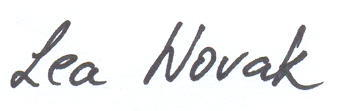 Lea Novak